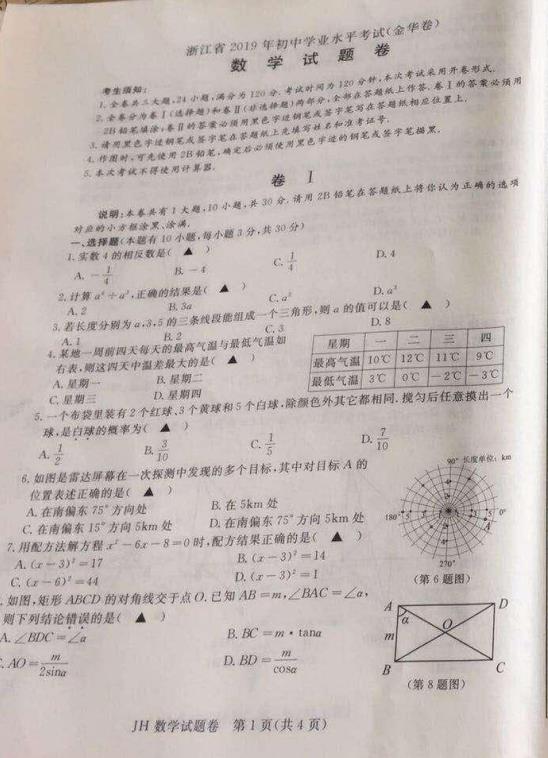 浙江省2019年初中学业水平考试(金华卷)
数学试题卷
考生须知:
1.全卷共三大题,24小题,满分为120分.考试时间为120分钟,本次考试采用开卷形式.
2.全卷分为卷Ⅰ(选择题)和卷Ⅱ(非选择题)两部分,全部在答题纸上作答.卷Ⅰ的答案必须用
2B铅笔填涂;卷Ⅱ的答案必须用黑色字迹钢笔或签字笔写在答题纸相应位置上.
3.请用黑色字迹钢笔或签字笔在答题纸上先填写姓名和准考证号.
4.作图时,可先使用2B铅笔,确定后必须使用黑色字迹的钢笔或签字笔描黑.
5.本次考试不得使用计算器.
卷 Ⅰ
说明:本卷共有1大题,10小题,共30分.请用2B铅笔在答题纸上将你认为正确的选项
对应的小方框涂黑、涂满.
一、选择题(本题有10小题,每小题3分,共30分)
1.实数4的相反数是( ▲ )
A. -1/4 B. -4 C. 1/4 D. 4
2.计算a⁶÷a³,正确的结果是( ▲ )
A. 2 B. 3a C. a² D. a³
3.若长度分别为a,3,5的三条线段能组成一个三角形,则a的值可以是( ▲ )
A. 1 B. 2 C. 3 D. 8
4.某地一周前四天每天的最高气温与最低气温如
右表,则这四天中温差最大的是( ▲ )
A. 星期一 B. 星期二
C. 星期三 D. 星期四
星期 一 二 三 四
最高气温 10℃ 12℃ 11℃ 9℃
最低气温 3℃ 0℃ -2℃ -3℃
5.一个布袋里装有2个红球、3个黄球和5个白球,除颜色外其它都相同.搅匀后任意摸出一个
球,是白球的概率为( ▲ )
A. 1/2 B. 3/10 C. 1/5 D. 7/10
6.如图是雷达屏幕在一次探测中发现的多个目标,其中对目标A的
位置表述正确的是( ▲ )
A. 在南偏东75°方向处 B. 在5km处
C. 在南偏东15°方向5km处 D. 在南偏东75°方向5km处
90° 长度单位:km
180° 0°
A
270°
(第6题图)
7.用配方法解方程x²-6x-8=0时,配方结果正确的是( ▲ )
A. (x-3)²=17 B. (x-3)²=14
C. (x-6)²=44 D. (x-3)²=1
.如图,矩形ABCD的对角线交于点O.已知AB=m,∠BAC=∠α,
则下列结论错误的是( ▲ )
A. ∠BDC=∠α B. BC=m·tanα
C. AO=m/2sinα D. BD=m/cosα
A D
α
m O
B C
(第8题图)
JH 数学试题卷 第1页(共4页)